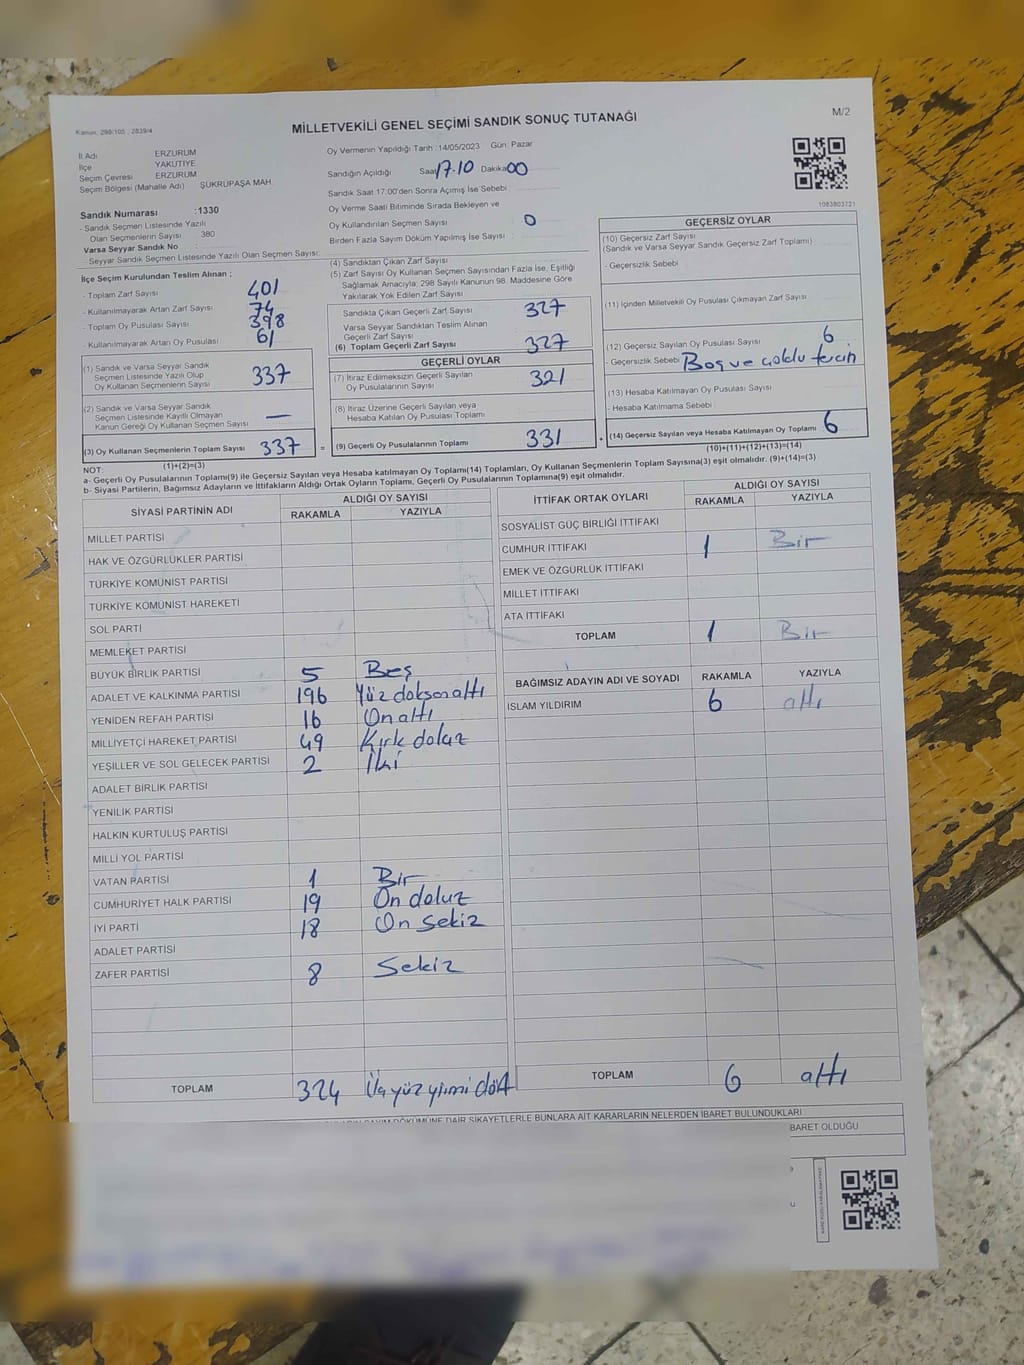 Kanun, 298/105 , 2839/4
MİLLETVEKİLİ GENEL SEÇİMİ SANDIK SONUÇ TUTANAĞI
M/2
İl Adı ERZURUM
İlçe YAKUTİYE
Seçim Çevresi ERZURUM
Seçim Bölgesi (Mahalle Adı) ŞÜKRÜPAŞA MAH.
Sandık Numarası :1330
- Sandık Seçmen Listesinde Yazılı
Olan Seçmenlerin Sayısı 380
Varsa Seyyar Sandık No
- Seyyar Sandık Seçmen Listesinde Yazılı Olan Seçmen Sayısı:
İlçe Seçim Kurulundan Teslim Alınan ;
- Toplam Zarf Sayısı 401
- Kullanılmayarak Artan Zarf Sayısı 74
- Toplam Oy Pusulası Sayısı 398
- Kullanılmayarak Artan Oy Pusulası 61
(1) Sandık ve Varsa Seyyar Sandık
Seçmen Listesinde Yazılı Olup
Oy Kullanan Seçmenlerin Sayısı 337
(2) Sandık ve Varsa Seyyar Sandık
Seçmen Listesinde Kayıtlı Olmayan
Kanun Gereği Oy Kullanan Seçmen Sayısı —
(3) Oy Kullanan Seçmenlerin Toplam Sayısı 337 =
(1)+(2)=(3)
Oy Vermenin Yapıldığı Tarih :14/05/2023 Gün: Pazar
Sandığın Açıldığı Saat 17.10 Dakika 00
Sandık Saat 17.00'den Sonra Açımış İse Sebebi
Oy Verme Saati Bitiminde Sırada Bekleyen ve
Oy Kullandırılan Seçmen Sayısı : 0
Birden Fazla Sayım Döküm Yapılmış İse Sayısı :
(4) Sandıktan Çıkan Zarf Sayısı
(5) Zarf Sayısı Oy Kullanan Seçmen Sayısından Fazla İse, Eşitliği
Sağlamak Amacıyla; 298 Sayılı Kanunun 98. Maddesine Göre
Yakılarak Yok Edilen Zarf Sayısı
Sandıkta Çıkan Geçerli Zarf Sayısı 327
Varsa Seyyar Sandıktan Teslim Alınan
Geçerli Zarf Sayısı
(6) Toplam Geçerli Zarf Sayısı 327
GEÇERLİ OYLAR
(7) İtiraz Edilmeksizin Geçerli Sayılan
Oy Pusulalarının Sayısı 321
(8) İtiraz Üzerine Geçerli Sayılan veya
Hesaba Katılan Oy Pusulası Toplamı
(9) Geçerli Oy Pusulalarının Toplamı 331 +
1083803721
GEÇERSİZ OYLAR
(10) Geçersiz Zarf Sayısı
(Sandık ve Varsa Seyyar Sandık Geçersiz Zarf Toplamı)
- Geçersizlik Sebebi
(11) İçinden Milletvekili Oy Pusulası Çıkmayan Zarf Sayısı
(12) Geçersiz Sayılan Oy Pusulası Sayısı 6
- Geçersizlik Sebebi Boş ve çoklu tercih
(13) Hesaba Katılmayan Oy Pusulası Sayısı
- Hesaba Katılmama Sebebi
(14) Geçersiz Sayılan veya Hesaba Katılmayan Oy Toplamı 6
(10)+(11)+(12)+(13)=(14)
NOT:
a- Geçerli Oy Pusulalarının Toplamı(9) ile Geçersiz Sayılan veya Hesaba katılmayan Oy Toplamı(14) Toplamları, Oy Kullanan Seçmenlerin Toplam Sayısına(3) eşit olmalıdır. (9)+(14)=(3)
b- Siyasi Partilerin, Bağımsız Adayların ve İttifakların Aldığı Ortak Oyların Toplamı, Geçerli Oy Pusulalarının Toplamına(9) eşit olmalıdır.
SİYASİ PARTİNİN ADI ALDIĞI OY SAYISI
RAKAMLA YAZIYLA
MİLLET PARTİSİ
HAK VE ÖZGÜRLÜKLER PARTİSİ
TÜRKİYE KOMÜNİST PARTİSİ
TÜRKİYE KOMÜNİST HAREKETİ
SOL PARTİ
MEMLEKET PARTİSİ
BÜYÜK BİRLİK PARTİSİ 5 Beş
ADALET VE KALKINMA PARTİSİ 196 Yüz doksan altı
YENİDEN REFAH PARTİSİ 16 On altı
MİLLİYETÇİ HAREKET PARTİSİ 49 Kırk dokuz
YEŞİLLER VE SOL GELECEK PARTİSİ 2 İki
ADALET BİRLİK PARTİSİ
YENİLİK PARTİSİ
HALKIN KURTULUŞ PARTİSİ
MİLLİ YOL PARTİSİ
VATAN PARTİSİ 1 Bir
CUMHURİYET HALK PARTİSİ 19 On dokuz
İYİ PARTİ 18 On sekiz
ADALET PARTİSİ
ZAFER PARTİSİ 8 Sekiz
TOPLAM 324 üçyüz yirmi dört
İTTİFAK ORTAK OYLARI ALDIĞI OY SAYISI
RAKAMLA YAZIYLA
SOSYALIST GÜÇ BİRLİĞİ İTTİFAKI
CUMHUR İTTİFAKI 1 Bir
EMEK VE ÖZGÜRLÜK İTTİFAKI
MİLLET İTTİFAKI
ATA İTTİFAKI
TOPLAM 1 Bir
BAĞIMSIZ ADAYIN ADI VE SOYADI RAKAMLA YAZIYLA
İSLAM YILDIRIM 6 altı
TOPLAM 6 altı
SAYIM DÖKÜMÜNE DAİR ŞİKAYETLERLE BUNLARA AİT KARARLARIN NELERDEN İBARET BULUNDUKLARI
BARET OLDUĞU